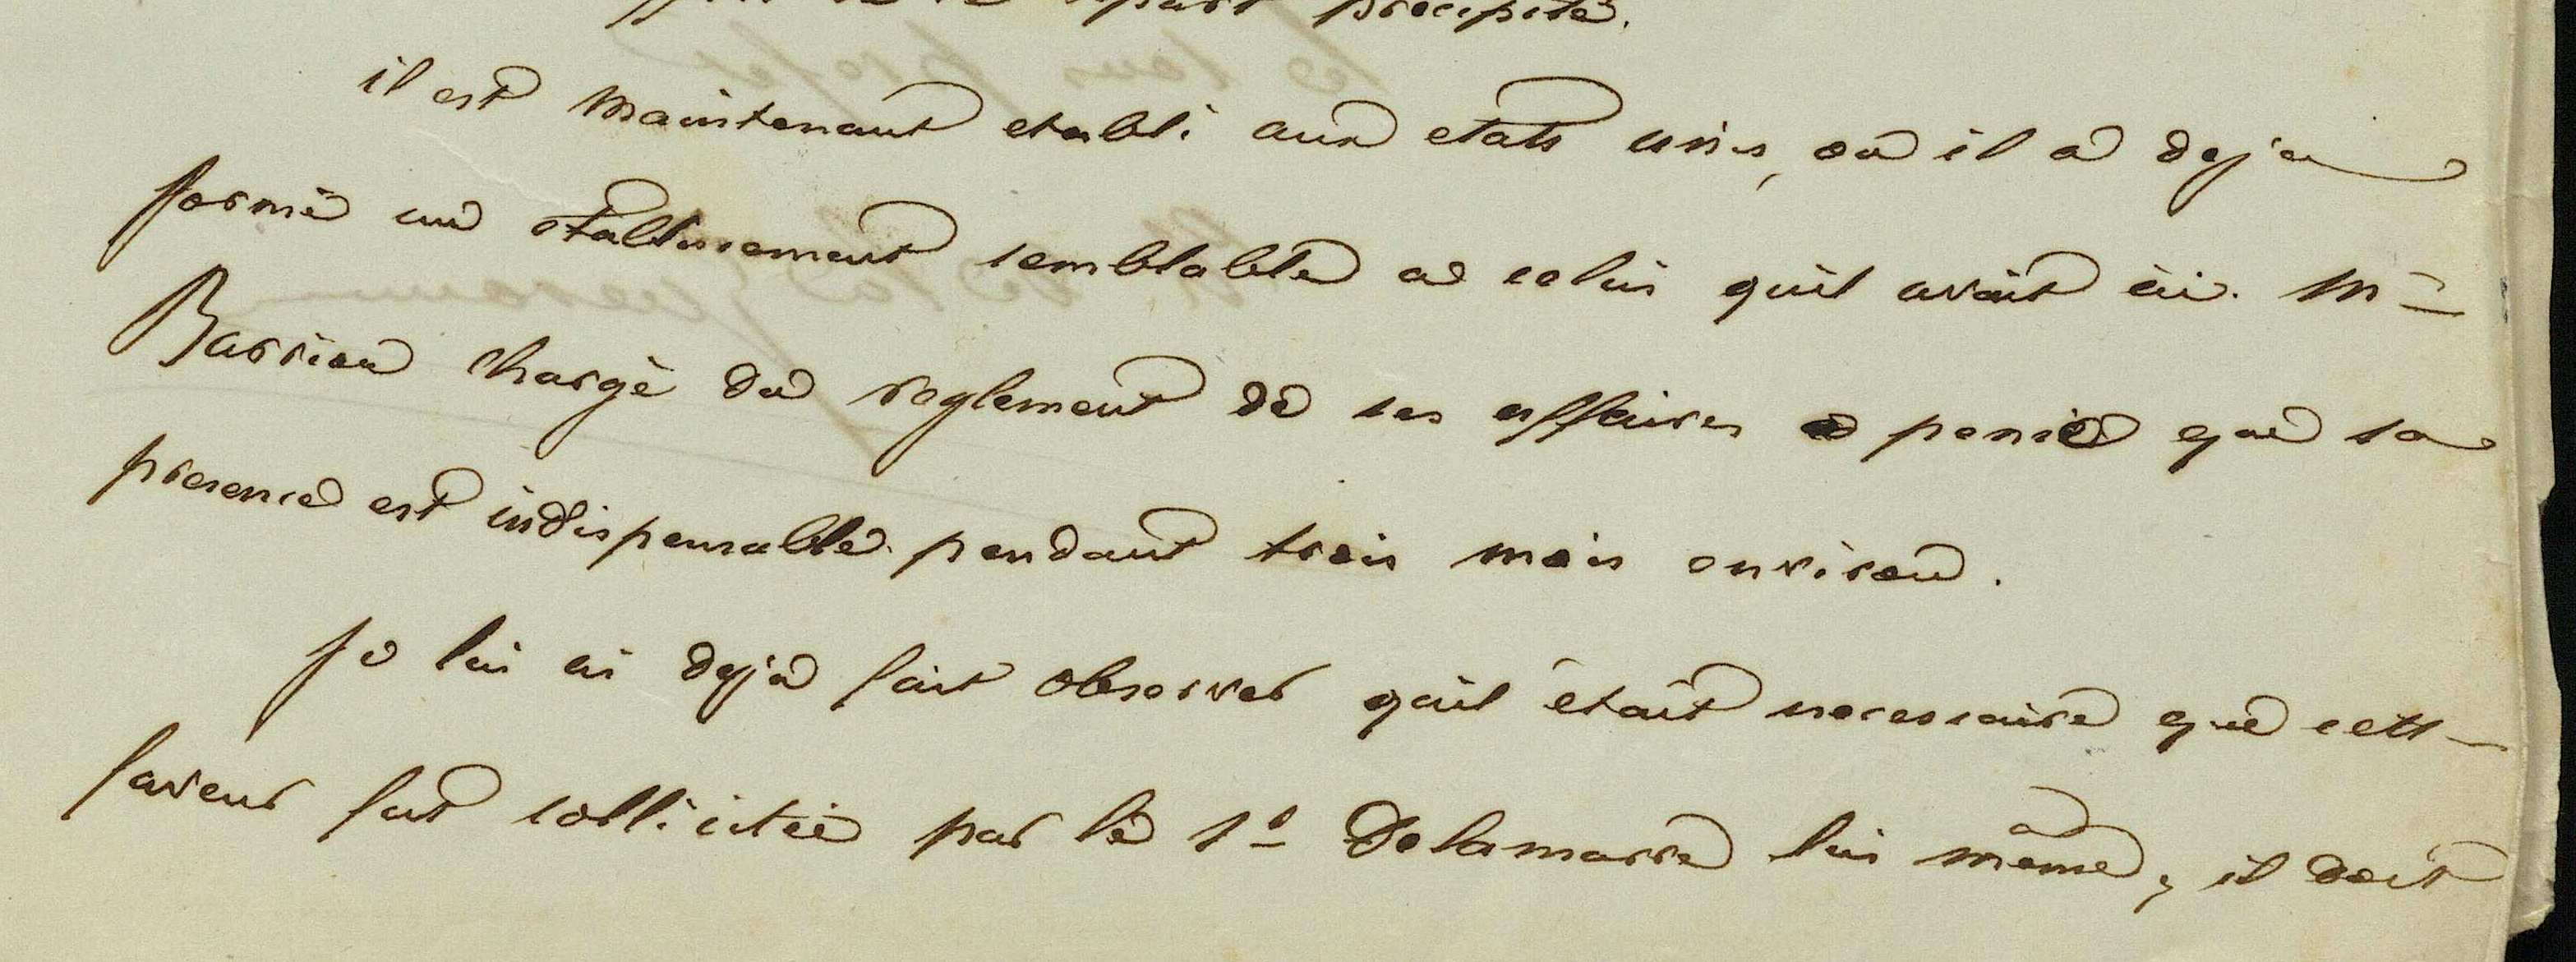 depart precipité.
il est maintenant etabli aux etats unis, ou il a deja
formé un etablissement semblable a celui quil avait ici. Mr
Barrieu chargé du reglement de ses affaires a pensé que sa
presence est indispensable pendant trois mois environ.
Je lui ai deja fait observer quil était necessaire que cette
faveur fut sollicitée par le Sr Delamarre lui même, il doit